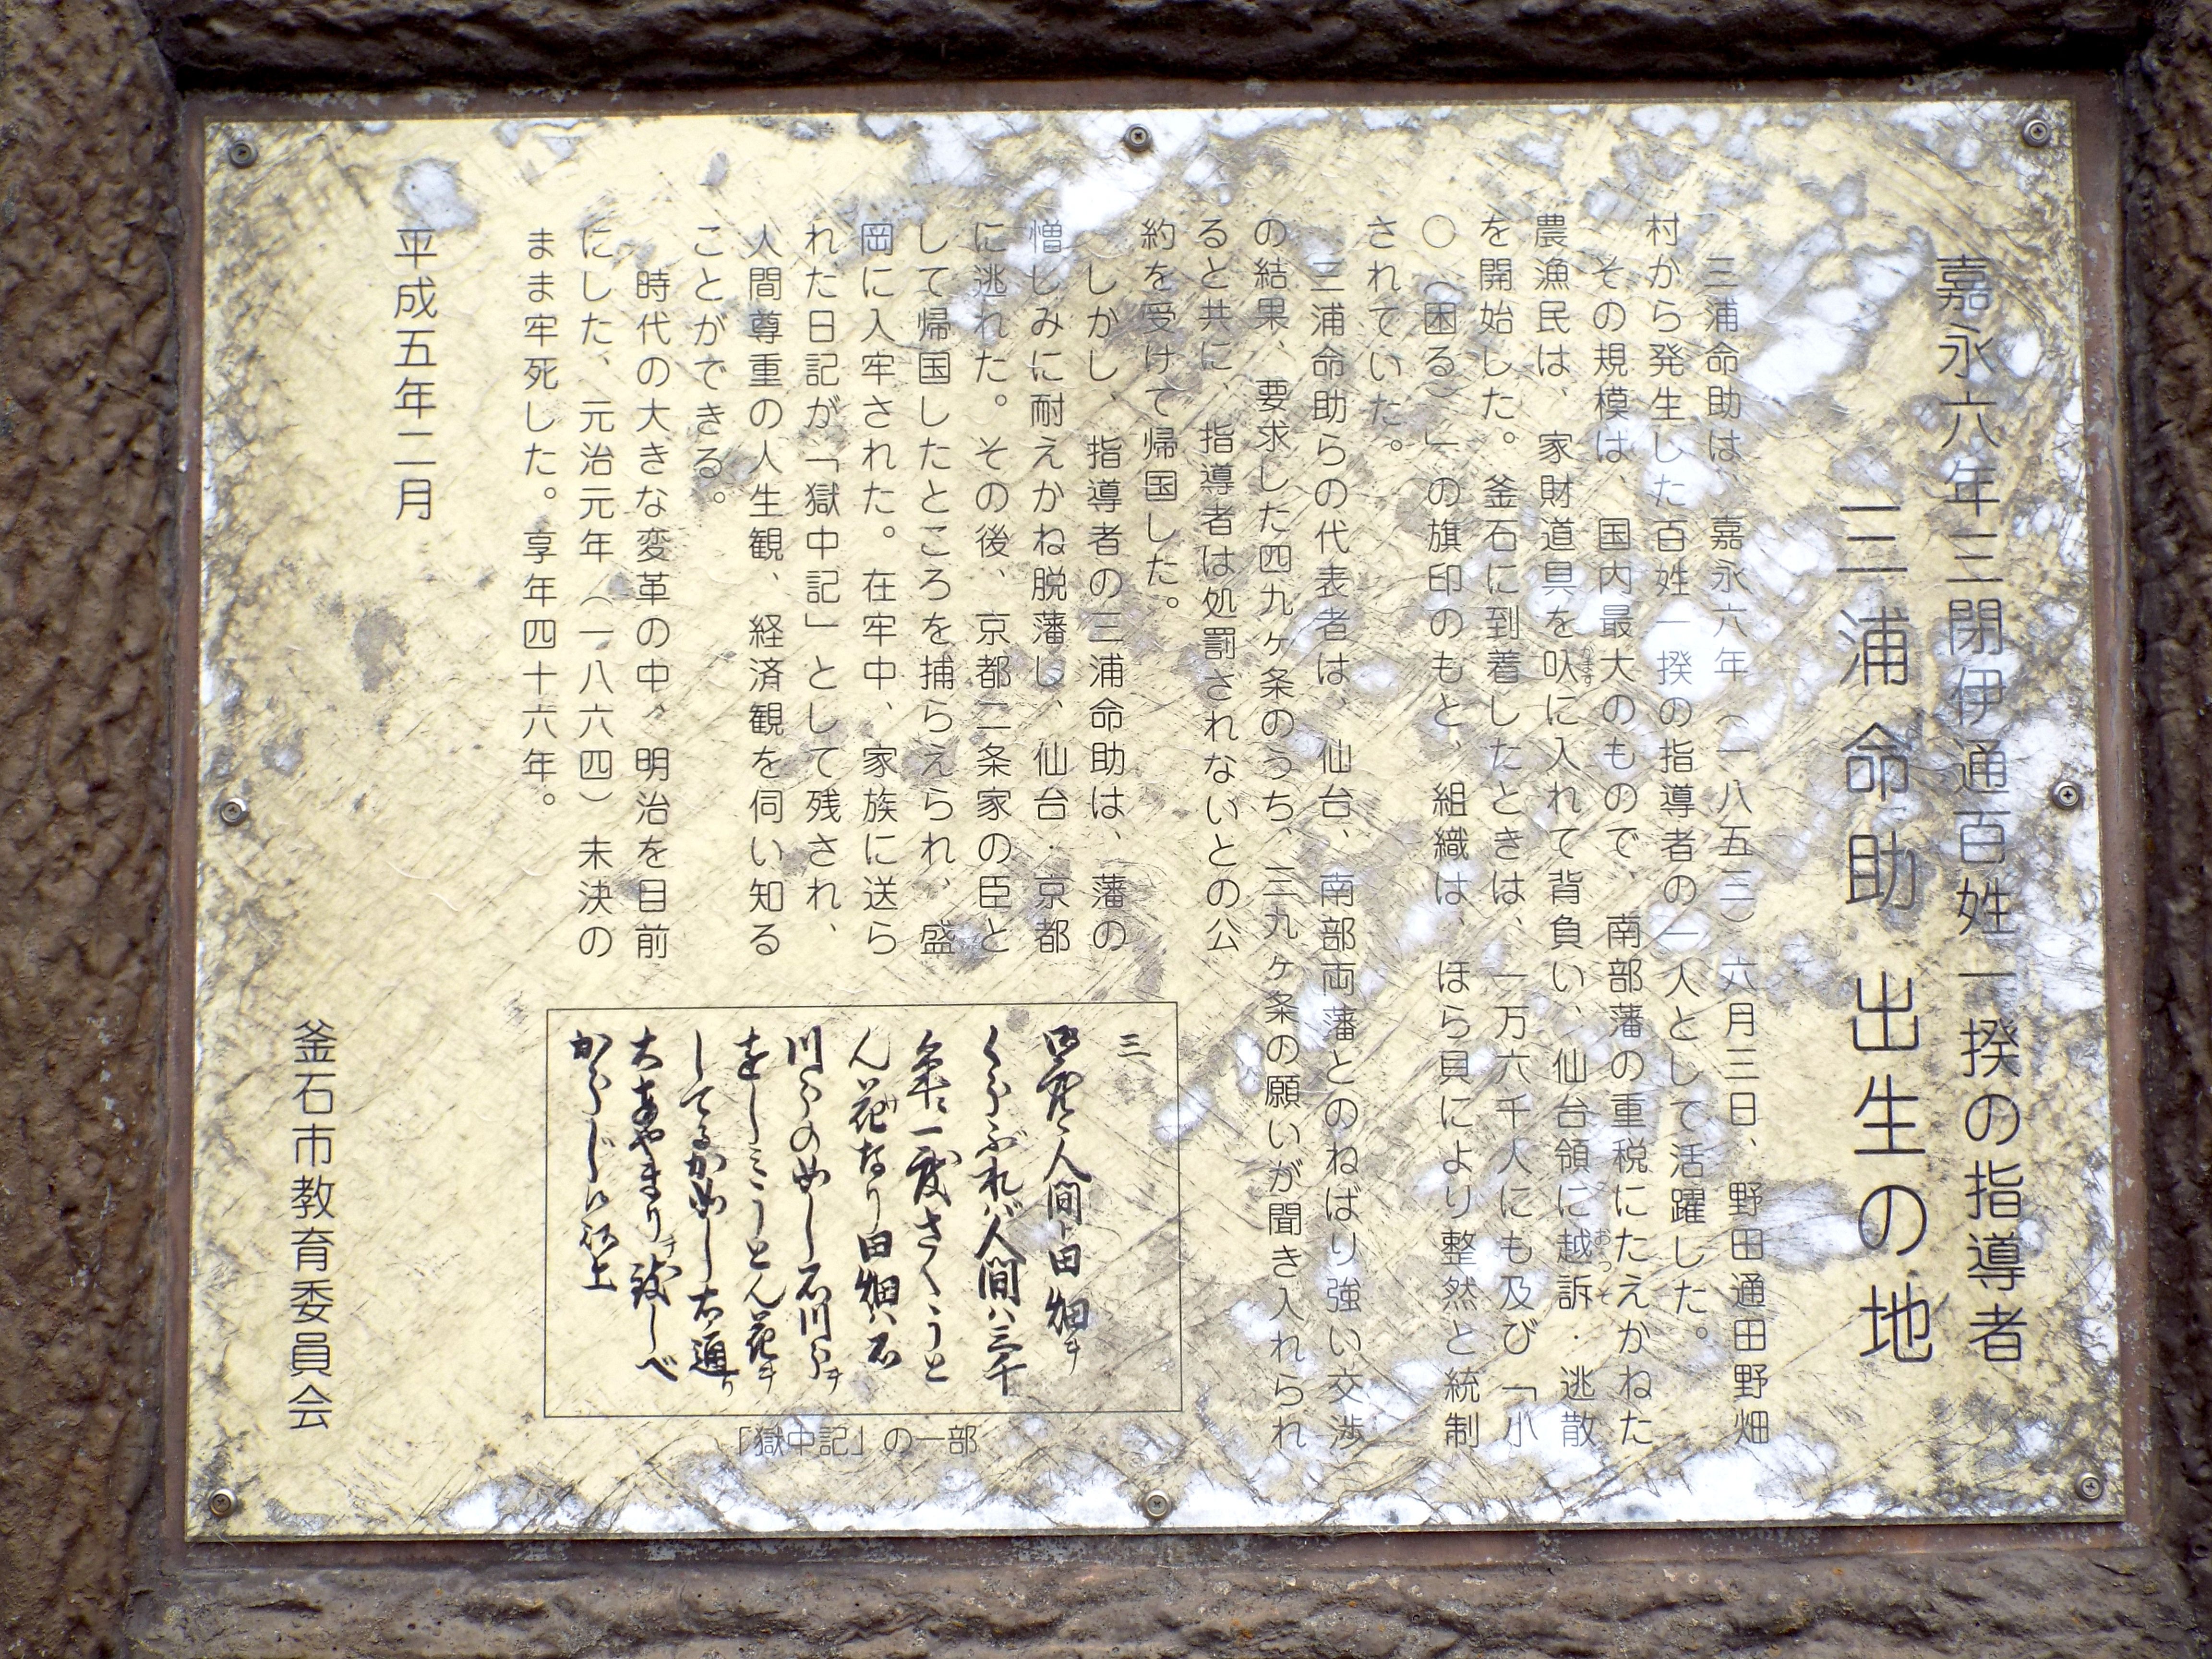 嘉永六年三閉伊通百姓一揆の指導者
三浦命助 出生の地
三浦命助は、嘉永六年（一八五三）六月三日、野田通田野畑
村から発生した百姓一揆の指導者の一人として活躍した。
その規模は、国内最大のもので、南部藩の重税にたえかねた
農漁民は、家財道具を叺に入れて背負い、仙台領に越訴・逃散
かます
おっそ
を開始した。釜石に到着したときは、一万六千人にも及び「小
〇（困る）」の旗印のもと、組織は、ほら貝により整然と統制
されていた。
三浦命助らの代表者は、仙台、南部両藩とのねばり強い交渉
の結果、要求した四九ヶ条のうち、三九ヶ条の願いが聞き入れられ
ると共に、指導者は処罰されないとの公
約を受けて帰国した。
しかし、指導者の三浦命助は、藩の
憎しみに耐えかね脱藩し、仙台・京都
に逃れた。その後、京都二条家の臣と
して帰国したところを捕らえられ、盛
岡に入牢された。在牢中、家族に送ら
れた日記が「獄中記」として残され、
人間尊重の人生観、経済観を伺い知る
ことができる。
時代の大きな変革の中、明治を目前
にした、元治元年（一八六四）未決の
まま牢死した。享年四十六年。
平成五年二月
釜石市教育委員会
三
人間ト田畑ヲ
くらふれバ人間ハ三千
年ニ一度さくうと
ん花なり田畑ハ石
石川らヲ
をしミうとん花ヲ
「獄中記」の一部